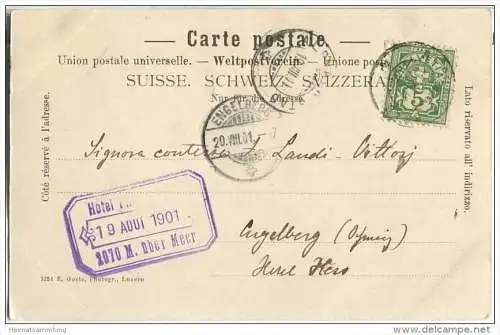 Carte postale
Union postale universelle. — Weltpostverein. — Unione postale
SUISSE. SCHWEIZ. SVIZZERA
Nur für die Adresse.
Côté réservé à l'adresse.
Lato riservato all' indirizzo.
ENGELBERG
20.VIII.01
5
Signora contessa Landi-Vittorj
Hotel
19 AOUT 1901
2070 M. über Meer
Engelberg (Svizzera)
Hotel Hess
3254 E. Goetz, Photogr., Luzern